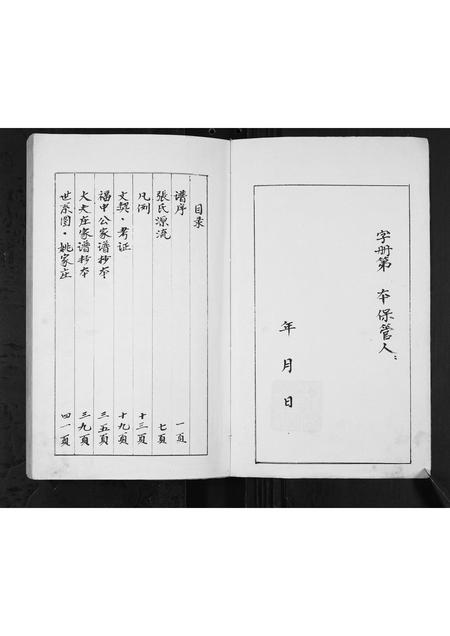 字册第 本保管人：
年 月 日
目录
谱序 一页
張氏源流 七页
凡例 十三頁
文契·考证 十九頁
福中公家谱抄本 三五頁
大大庄家谱抄本 三九頁
世系图·姚家庄 四一頁